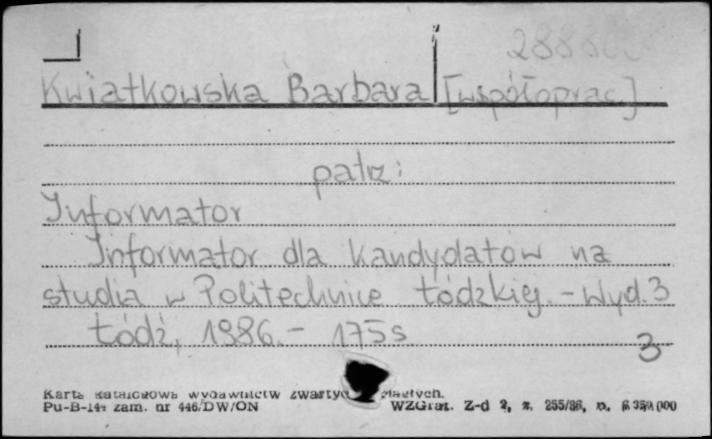 288800
Kwiatkowska Barbara [współoprac.]
patrz:
Informator
Informator dla kandydatów na
studia w Politechnice Łódzkiej. - Wyd. 3
Łódź, 1986. - 175 s
3
Karta katalogowa wydawnictw zwartych
Pu-B-144 zam. nr 446/DW/ON WZGraf. Z-d 2, z. 255/86, n. 350.000